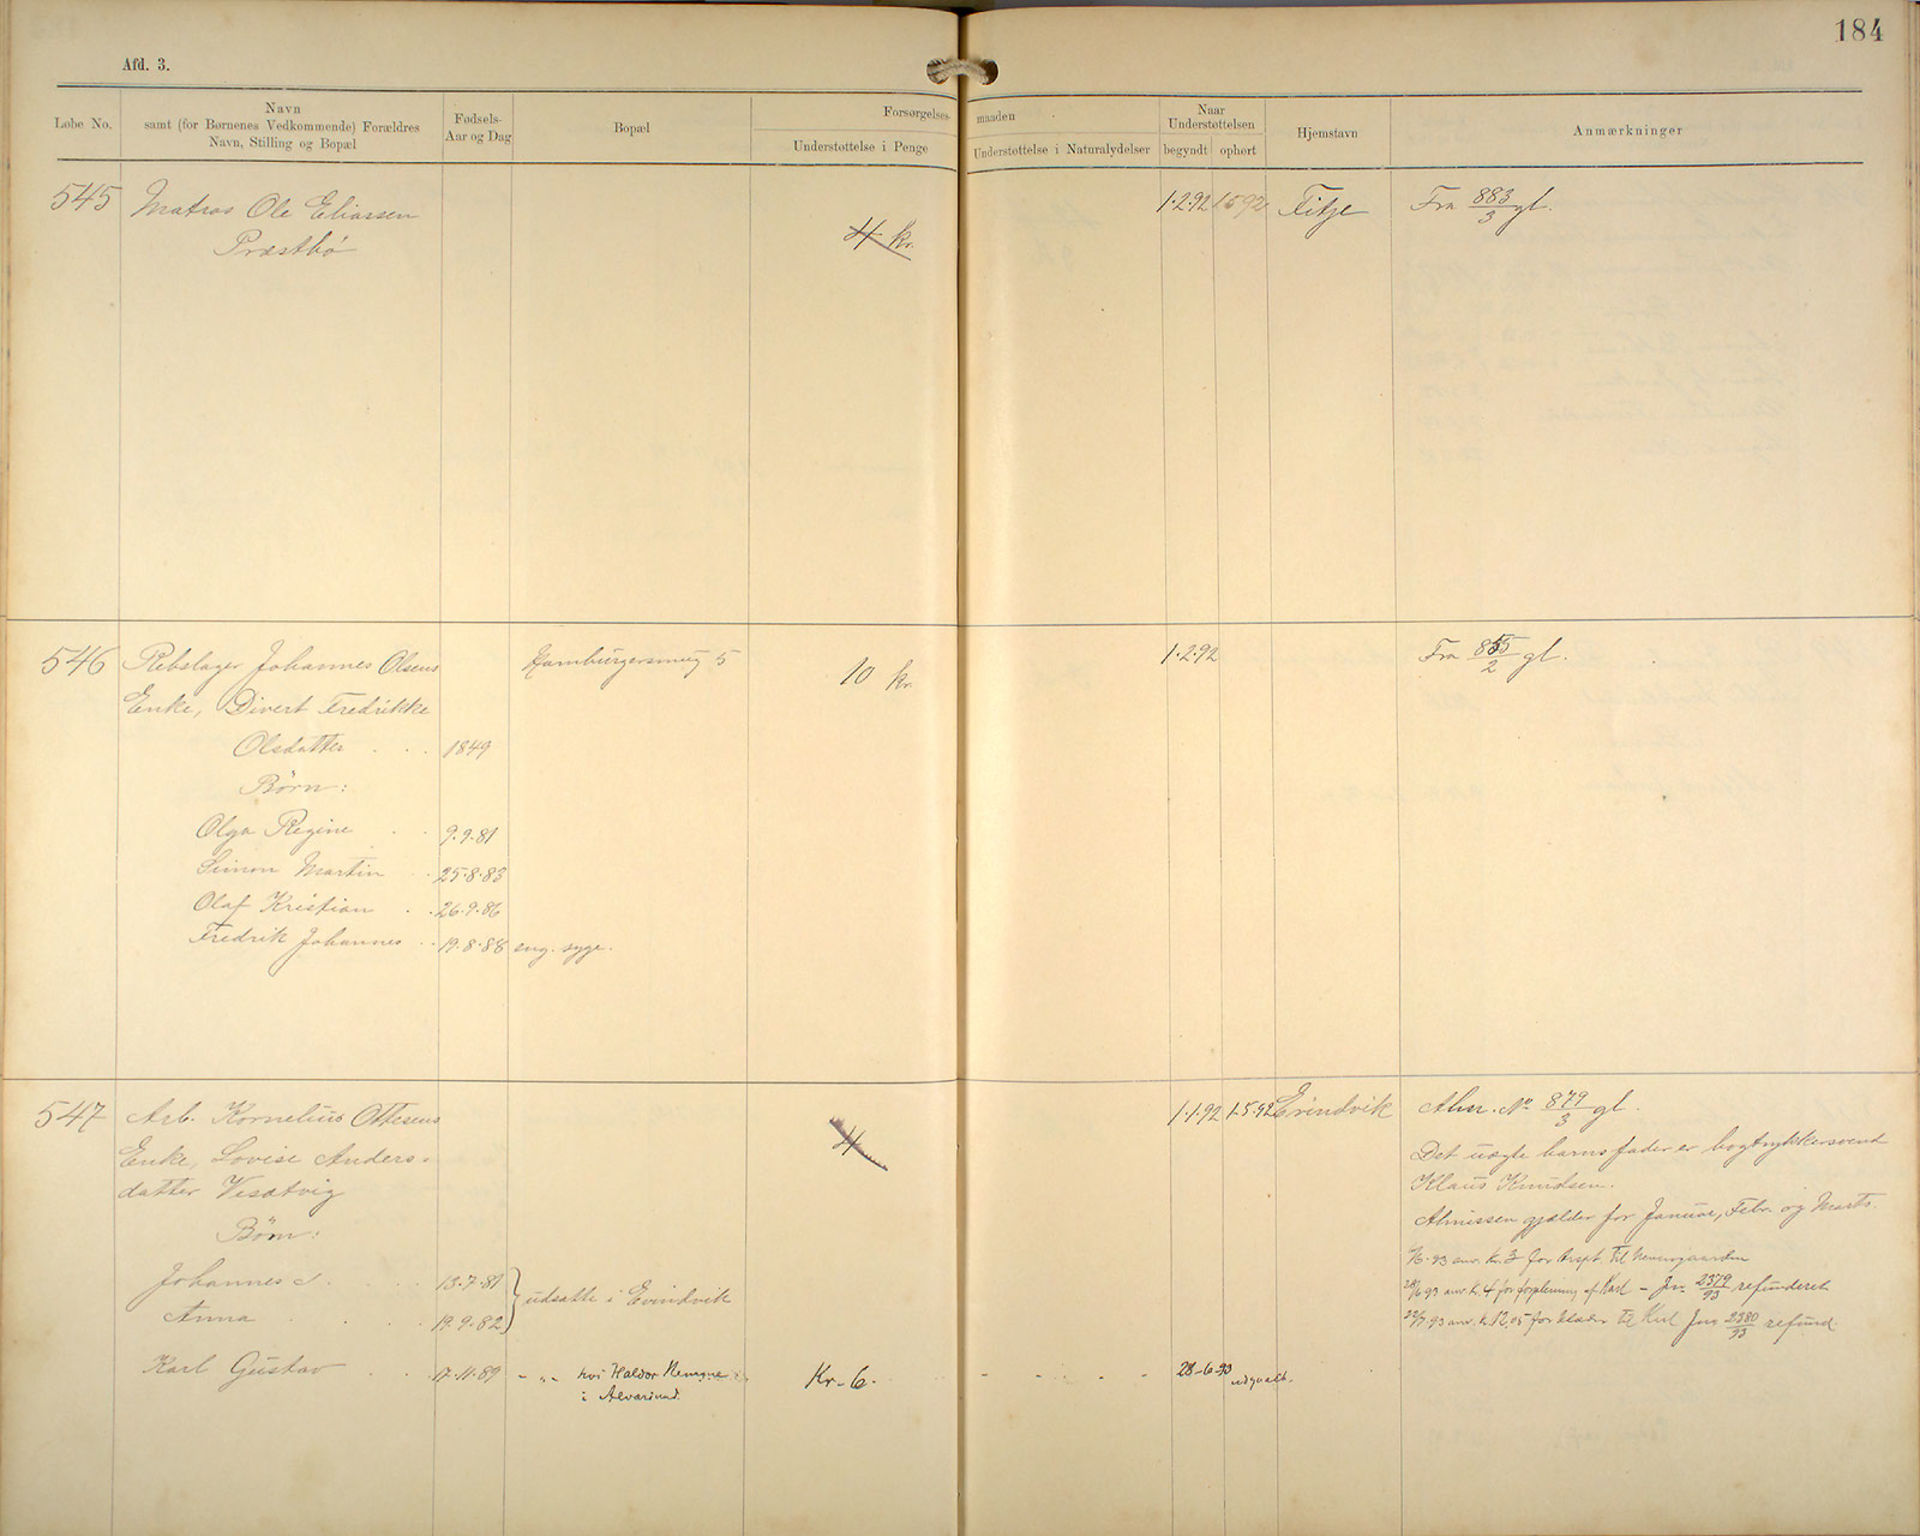 184
Afd. 3.
Løbe No.
Navn
samt (for Børnenes Vedkommende) Forældres
Navn, Stilling og Bopæl
Fødsels-
Aar og Dag
Bopæl
Forsørgelses-
maaden
Understøttelse i Penge
Understøttelse i Naturalydelser
Naar
Understøttelsen
begyndt
ophørt
Hjemstavn
Anmærkninger
545 Matros Ole Eliassen 1.2.92 1.5.92 Fitje Fra 883/3 gl.
Præstbø 4 kr.
546 Rebslager Johannes Olsens Hamburgersmug 5 10 kr. 1.2.92 Fra 855/2 gl.
Enke, Divert Fredrikke
Olsdatter 1849
Børn:
Olga Regine 9.9.81
Simon Martin 25.8.83
Olaf Kristian 26.9.86
Fredrik Johannes 19.8.88 eng. syge.
547 Arb. Kornelius Ottesens 4 1.1.92 1.5.92 Evindvik Alm. No 879/3 gl.
Enke, Lovise Anders-
datter
Børn:
Det uægte barns fader er bogtrykkersvend
Klaus Knudsen.
Almissen gjælder for Januar, Febr. og Marts.
93 anv. kr. 3 for
93 anv. kr. 4 for forpleining af Karl - Jn. 2379/93 refunderet
93 anv. kr. 12,05 for klæder til Karl Jn 2380/93 refund.
Johannes 13.7.81
Anna 19.9.82
udsatte i Evindvik
Karl Gustav 17.11.89 - „ - hos Haldor
i Alversund.
Kr. 6. 28-6-93